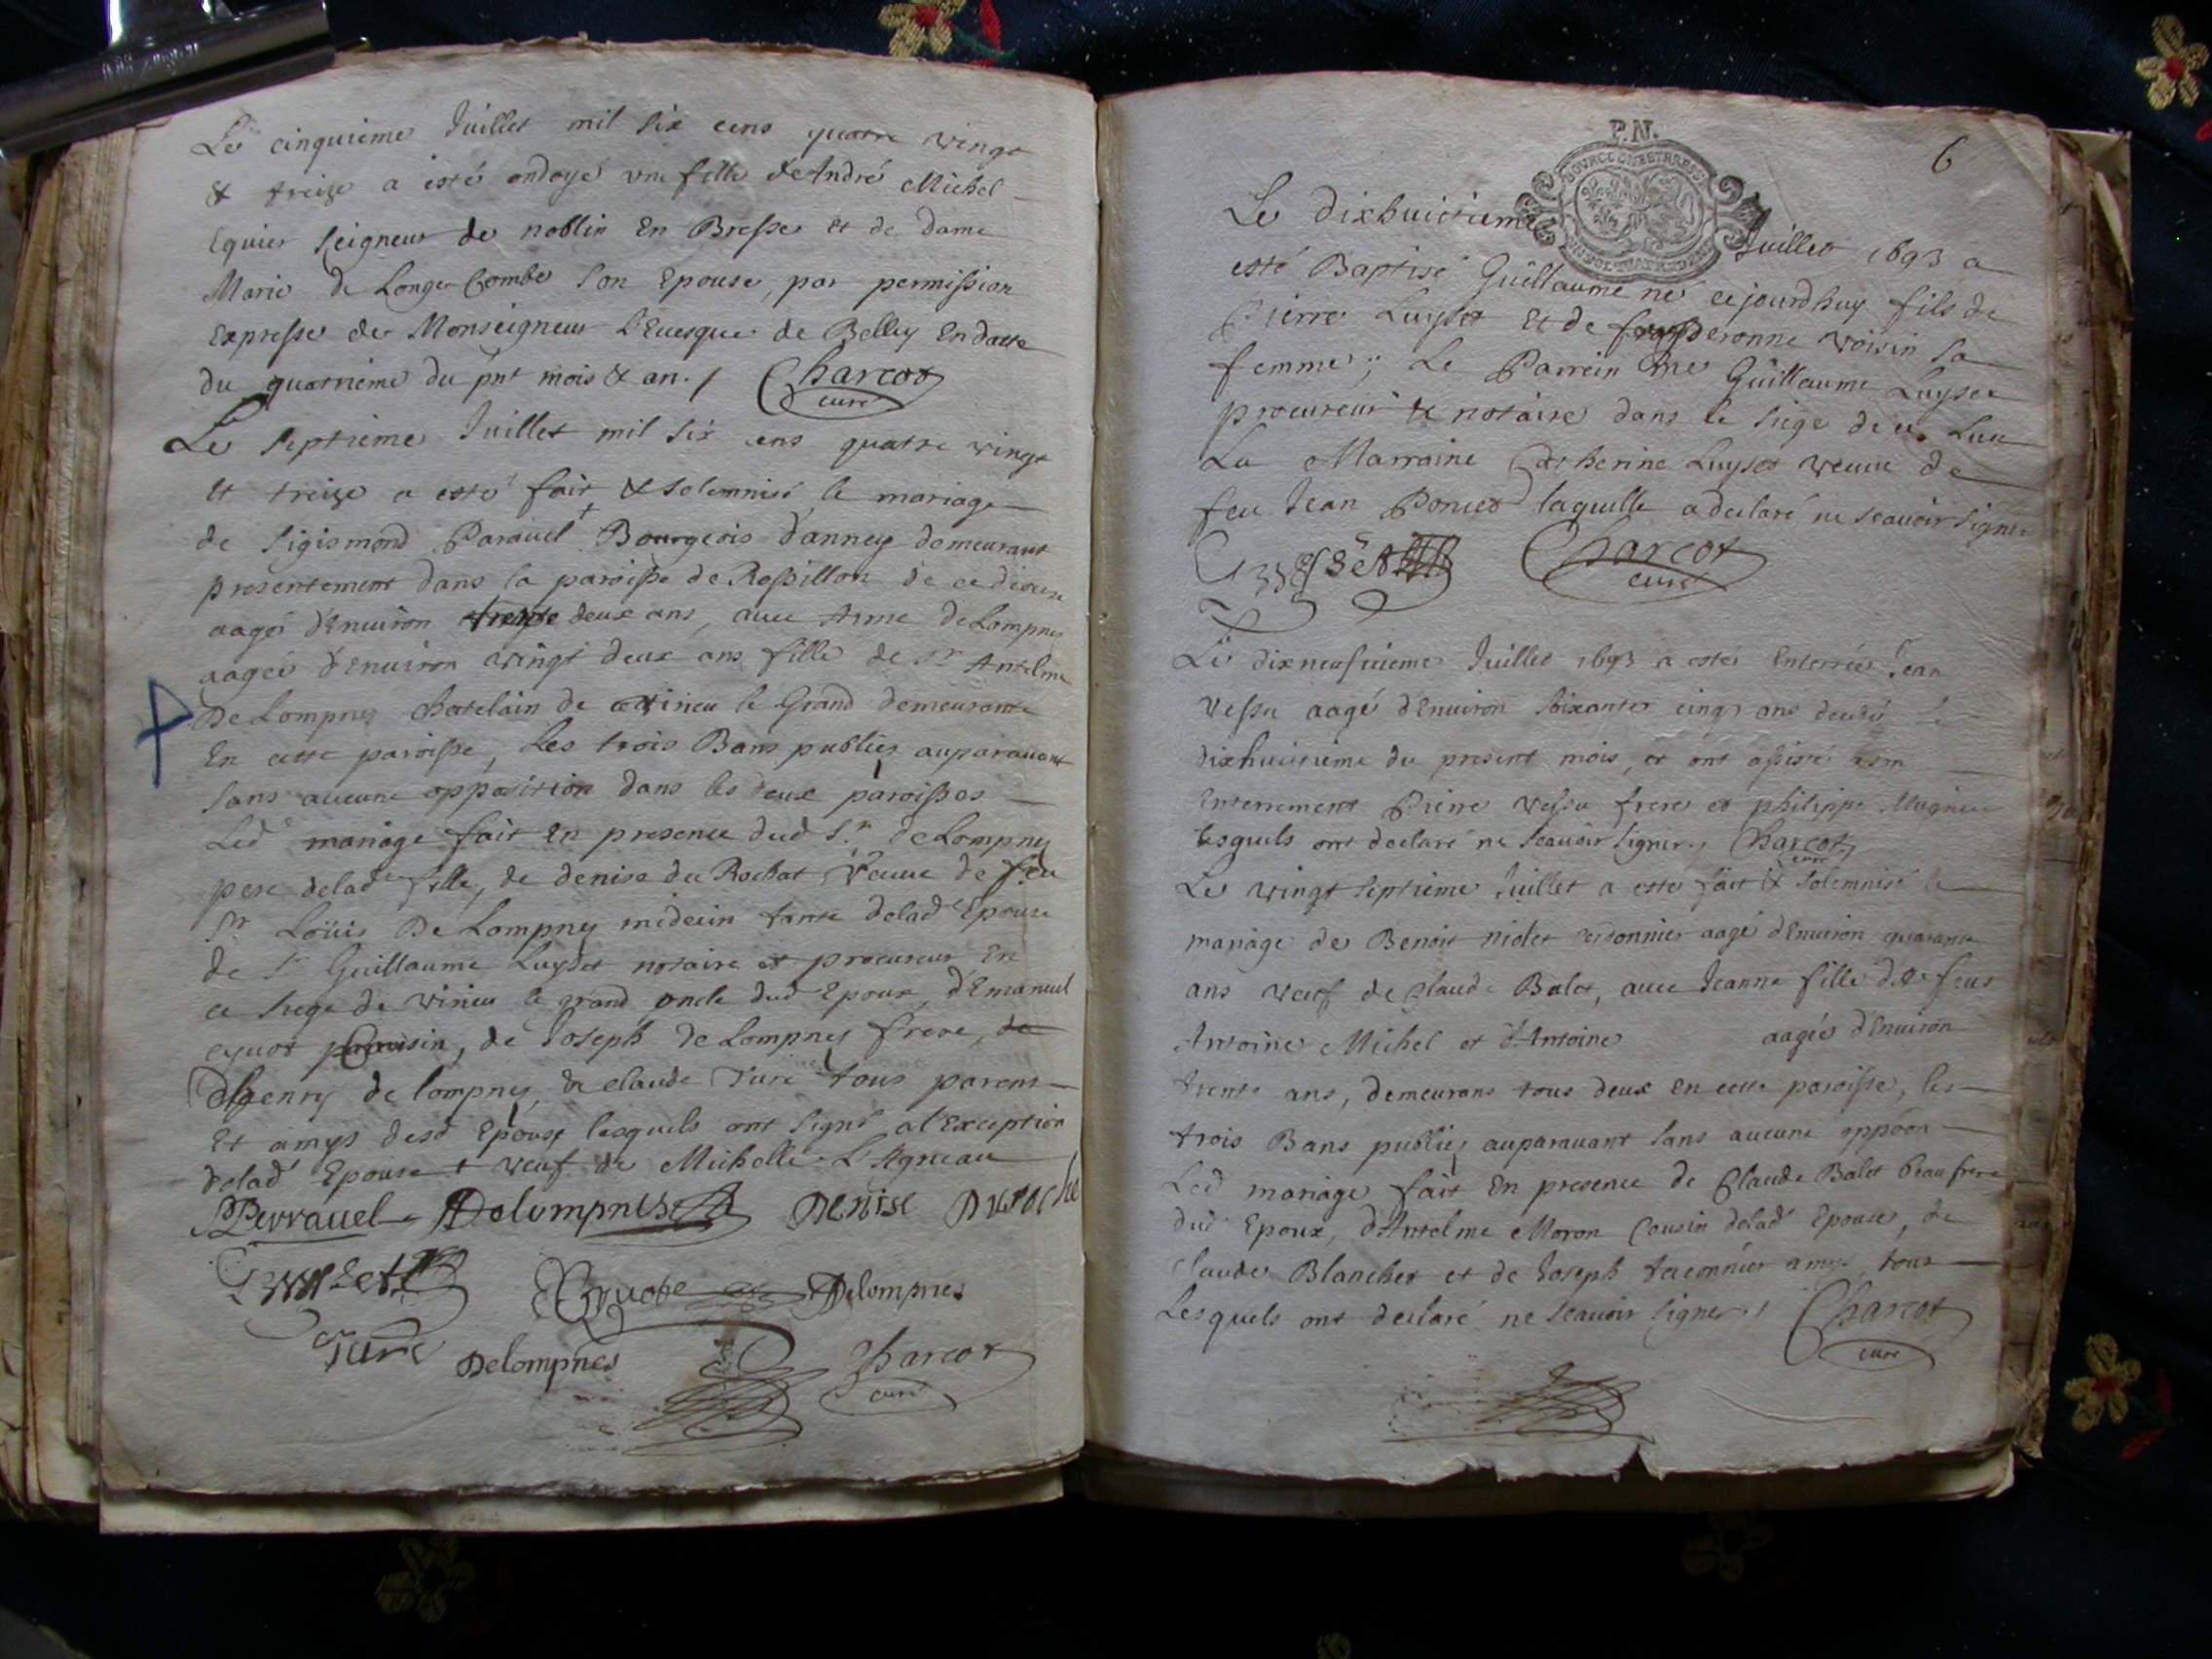 Le cinquieme Juillet mil six cens quatre vingt
& treize a esté ondoyé une fille de André Michel
Equier seigneur de noblin En Bresse et de dame
Marie de Longe Combe son Epouse, par permission
Expresse de Monseigneur l'Evesque de Belley En datte
du quatrieme du pnt mois & an. / Charcot
curé
Le septieme Juillet mil six cens quatre vingt
et treize a esté fait & solemnisé le mariage
de Sigismond Paravel + Bourgeois d'annecy demeurant
presentement dans la paroisse de Rossillon de ce diocese
aagé d'Environ trente deux ans, avec Anne de Lompnes
aagée d'Environ vingt deux ans fille de Sr Antelme
De Lompnes chatelain de virieu le Grand demeurante
En cette paroisse, Les trois Bans publiés auparavant
sans aucune opposition dans les deux paroisses
Led mariage fait En presence dud Sr. de Lompnes
pere delade fille, de denise du Rochat veuve de feu
Sr Loüis De Lompnes medecin tante delad Epouse
de Sr Guillaume Luyset notaire et procureur En
ce siege de virieu le grand oncle dud Epoux, d'Emanuel
cousin, de Joseph de Lompnes frere, de
henry de lompnes, de claude Ture tous parens
Et amys desd Epoux lesquels ont signé a l'Exception
delad Epouse + veuf de Michelle L'Agneau
Perravel Delompnes Denise Duroche
Luyset Delompnes
Ture Delompnes Charcot
curé
P.N.
6
Le dixhuictieme Juillet 1693 a
esté Baptisé Guillaume né cejourdhuy fils de
Pierre Luyset Et de peronne voisin sa
femme; Le Parrein me Guillaume Luyset
procureur & notaire dans le siege de ce Lieu
La Marraine Catherine Luyset veuve de
feu Jean Poncet laquelle a declaré ne scavoir signer
Luyset Charcot
curé
Le dixneufvieme Juillet 1693 a esté Enterrée Jean
Vessu aagé d'Environ soixante cinq ans decedé le
dixhuictieme du present mois, et ont assisté a son
Enterrement Pierre Vessu frere et philippe Mugnier
lesquels ont declaré ne scavoir signer, Charcot
curé
Le vingt septieme Juillet a esté fait & solemnisé le
mariage de Benoit niolet cordonnier aagé d'Environ quarante
ans veuf de Claude Balet, avec Jeanne fille de feus
Antoine Michel et d'Antoine aagée d'Environ
trente ans, demeurans tous deux en cette paroisse, les
trois Bans publiés auparavant sans aucune oppôon
Led mariage fait En presence de Claude Balet beau frere
dud Epoux, d'Antelme Moron Cousin delad Epouse, de
claude Blanchet et de Joseph amys tous
Lesquels ont declaré ne scavoir signer, / Charcot
curé